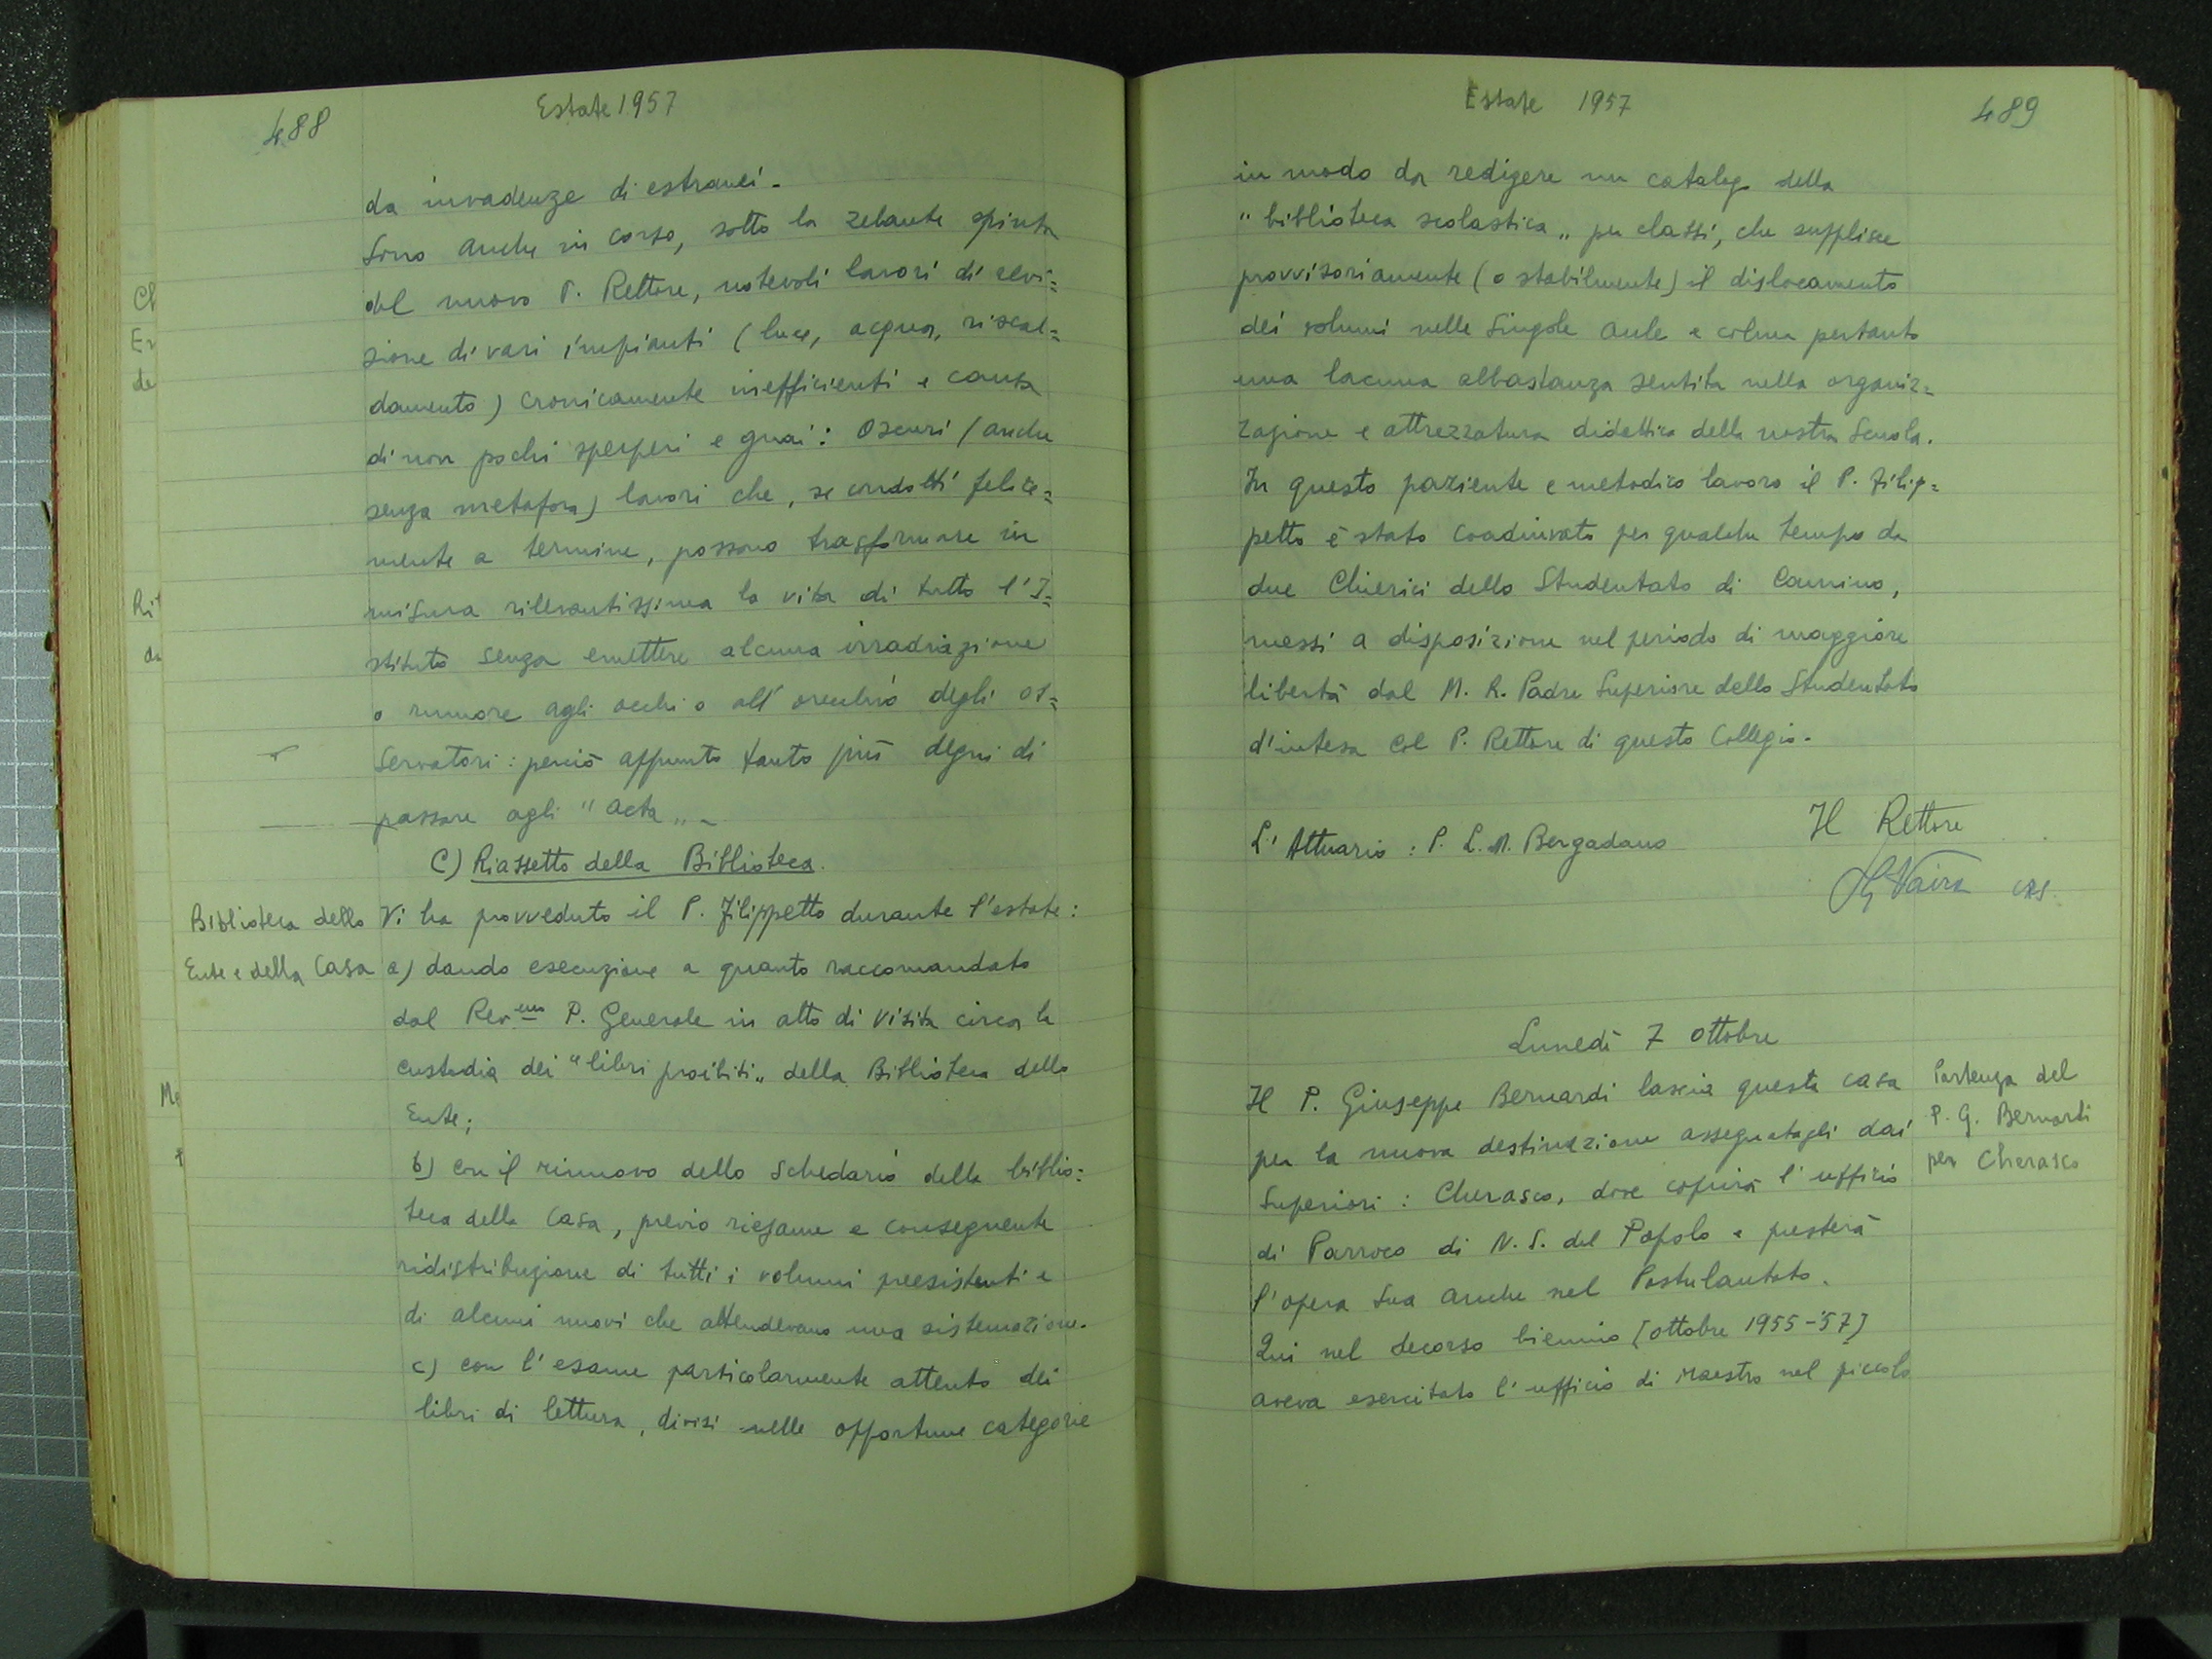 488
Estate 1957
da invadenze di estranei.
Sono anche in corso, sotto la zelante spinta
del nuovo P. Rettore, notevoli lavori di revi=
sione di vari impianti (luce, acqua, riscal=
damento) cronicamente inefficienti e causa
di non pochi sperperi e guai: Oscuri (anche
senza metafora) lavori che, se condotti felice=
mente a termine, possono trasformare in
misura rilevantissima la vita di tutto l'I=
stituto senza emettere alcuna irradiazione
o rumore agli occhi o all'orecchio degli os=
servatori: perciò appunto tanto più degni di
passare agli "acta„.
C) Riassetto della Biblioteca.
Biblioteca dello
Ente e della Casa
Vi ha provveduto il P. Filippetto durante l'estate:
a) dando esecuzione a quanto raccomandato
dal Rev.mo P. Generale in atto di Visita circa la
custodia dei "libri proibiti„ della Biblioteca dello
Ente;
b) con il rinnovo dello schedario della biblio=
teca della Casa, previo riesame e conseguente
ridistribuzione di tutti i volumi preesistenti e
di alcuni nuovi che attendevano una sistemazione.
c) con l'esame particolarmente attento dei
libri di lettura, divisi nelle opportune categorie
Ch
En
de
Ri
da
Estate 1957
489
in modo da redigere un catalogo della
"biblioteca scolastica„ per classi, che supplisce
provvisoriamente (o stabilmente) il dislocamento
dei volumi nelle singole aule e colma pertanto
una lacuna abbastanza sentita nella organiz=
zazione e attrezzatura didattica della nostra Scuola.
In questo paziente e metodico lavoro il P. Filip=
petto è stato coadiuvato per qualche tempo da
due Chierici dello Studentato di Camino,
messi a disposizione nel periodo di maggiore
libertà dal M. R. Padre Superiore dello Studentato
d'intesa col P. Rettore di questo Collegio.
L'Attuario: P. L. M. Bergadano
Il Rettore
Vaira crs.
Lunedì 7 ottobre
Il P. Giuseppe Bernardi lascia questa casa
per la nuova destinazione assegnatagli dai
Superiori: Cherasco, dove coprirà l'ufficio
di Parroco di N. S. del Popolo e presterà
l'opera sua anche nel Postulantato.
Qui nel decorso biennio [ottobre 1955-'57]
aveva esercitato l'ufficio di maestro nel piccolo
Partenza del
P. G. Bernardi
per Cherasco